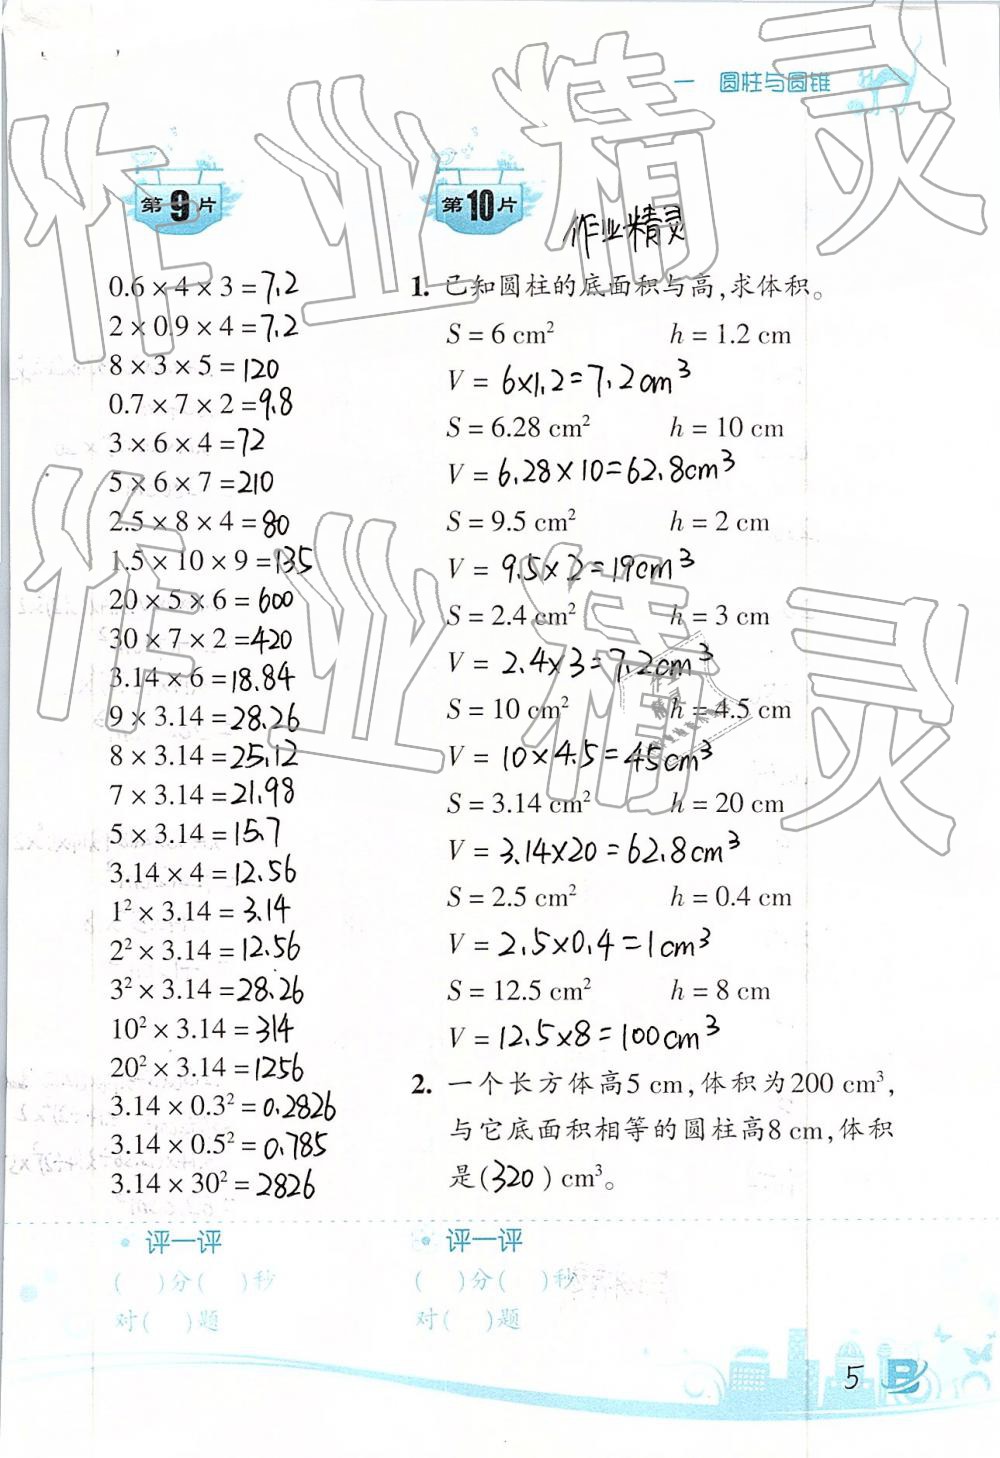 一 圆柱与圆锥
第9片
0.6×4×3=7.2
2×0.9×4=7.2
8×3×5=120
0.7×7×2=9.8
3×6×4=72
5×6×7=210
2.5×8×4=80
1.5×10×9=135
20×5×6=600
30×7×2=420
3.14×6=18.84
9×3.14=28.26
8×3.14=25.12
7×3.14=21.98
5×3.14=15.7
3.14×4=12.56
1²×3.14=3.14
2²×3.14=12.56
3²×3.14=28.26
10²×3.14=314
20²×3.14=1256
3.14×0.3²=0.2826
3.14×0.5²=0.785
3.14×30²=2826
评一评
( )分( )秒
对( )题
第10片
作业精灵
1. 已知圆柱的底面积与高,求体积。
S=6 cm² h=1.2 cm
V=6×1.2=7.2cm³
S=6.28 cm² h=10 cm
V=6.28×10=62.8cm³
S=9.5 cm² h=2 cm
V=9.5×2=19cm³
S=2.4 cm² h=3 cm
V=2.4×3=7.2cm³
S=10 cm² h=4.5 cm
V=10×4.5=45cm³
S=3.14 cm² h=20 cm
V=3.14×20=62.8cm³
S=2.5 cm² h=0.4 cm
V=2.5×0.4=1cm³
S=12.5 cm² h=8 cm
V=12.5×8=100cm³
2. 一个长方体高5 cm,体积为200 cm³,
与它底面积相等的圆柱高8 cm,体积
是(320)cm³。
评一评
( )分( )秒
对( )题
5
作业精灵
作业精灵